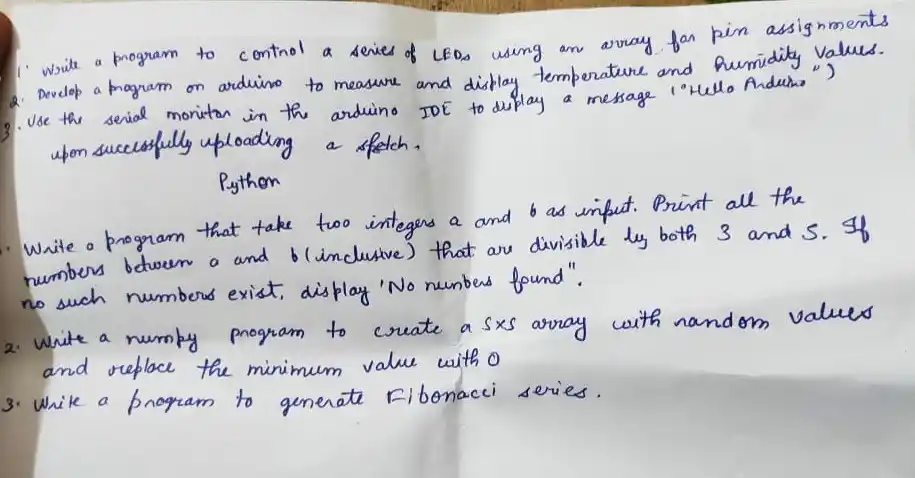 1. Write a program to control a series of LEDs using an array for pin assignments
2. Develop a program on arduino to measure and display temperature and humidity values.
3. Use the serial monitor in the arduino IDE to display a message ("Hello Arduino")
upon successfully uploading a sketch.
Python
. Write a program that take two integers a and b as input. Print all the
numbers between a and b (inclusive) that are divisible by both 3 and 5. If
no such numbers exist, display 'No numbers found".
2. Write a numpy program to create a 5x5 array with random values
and replace the minimum value with 0
3. Write a program to generate Fibonacci series.